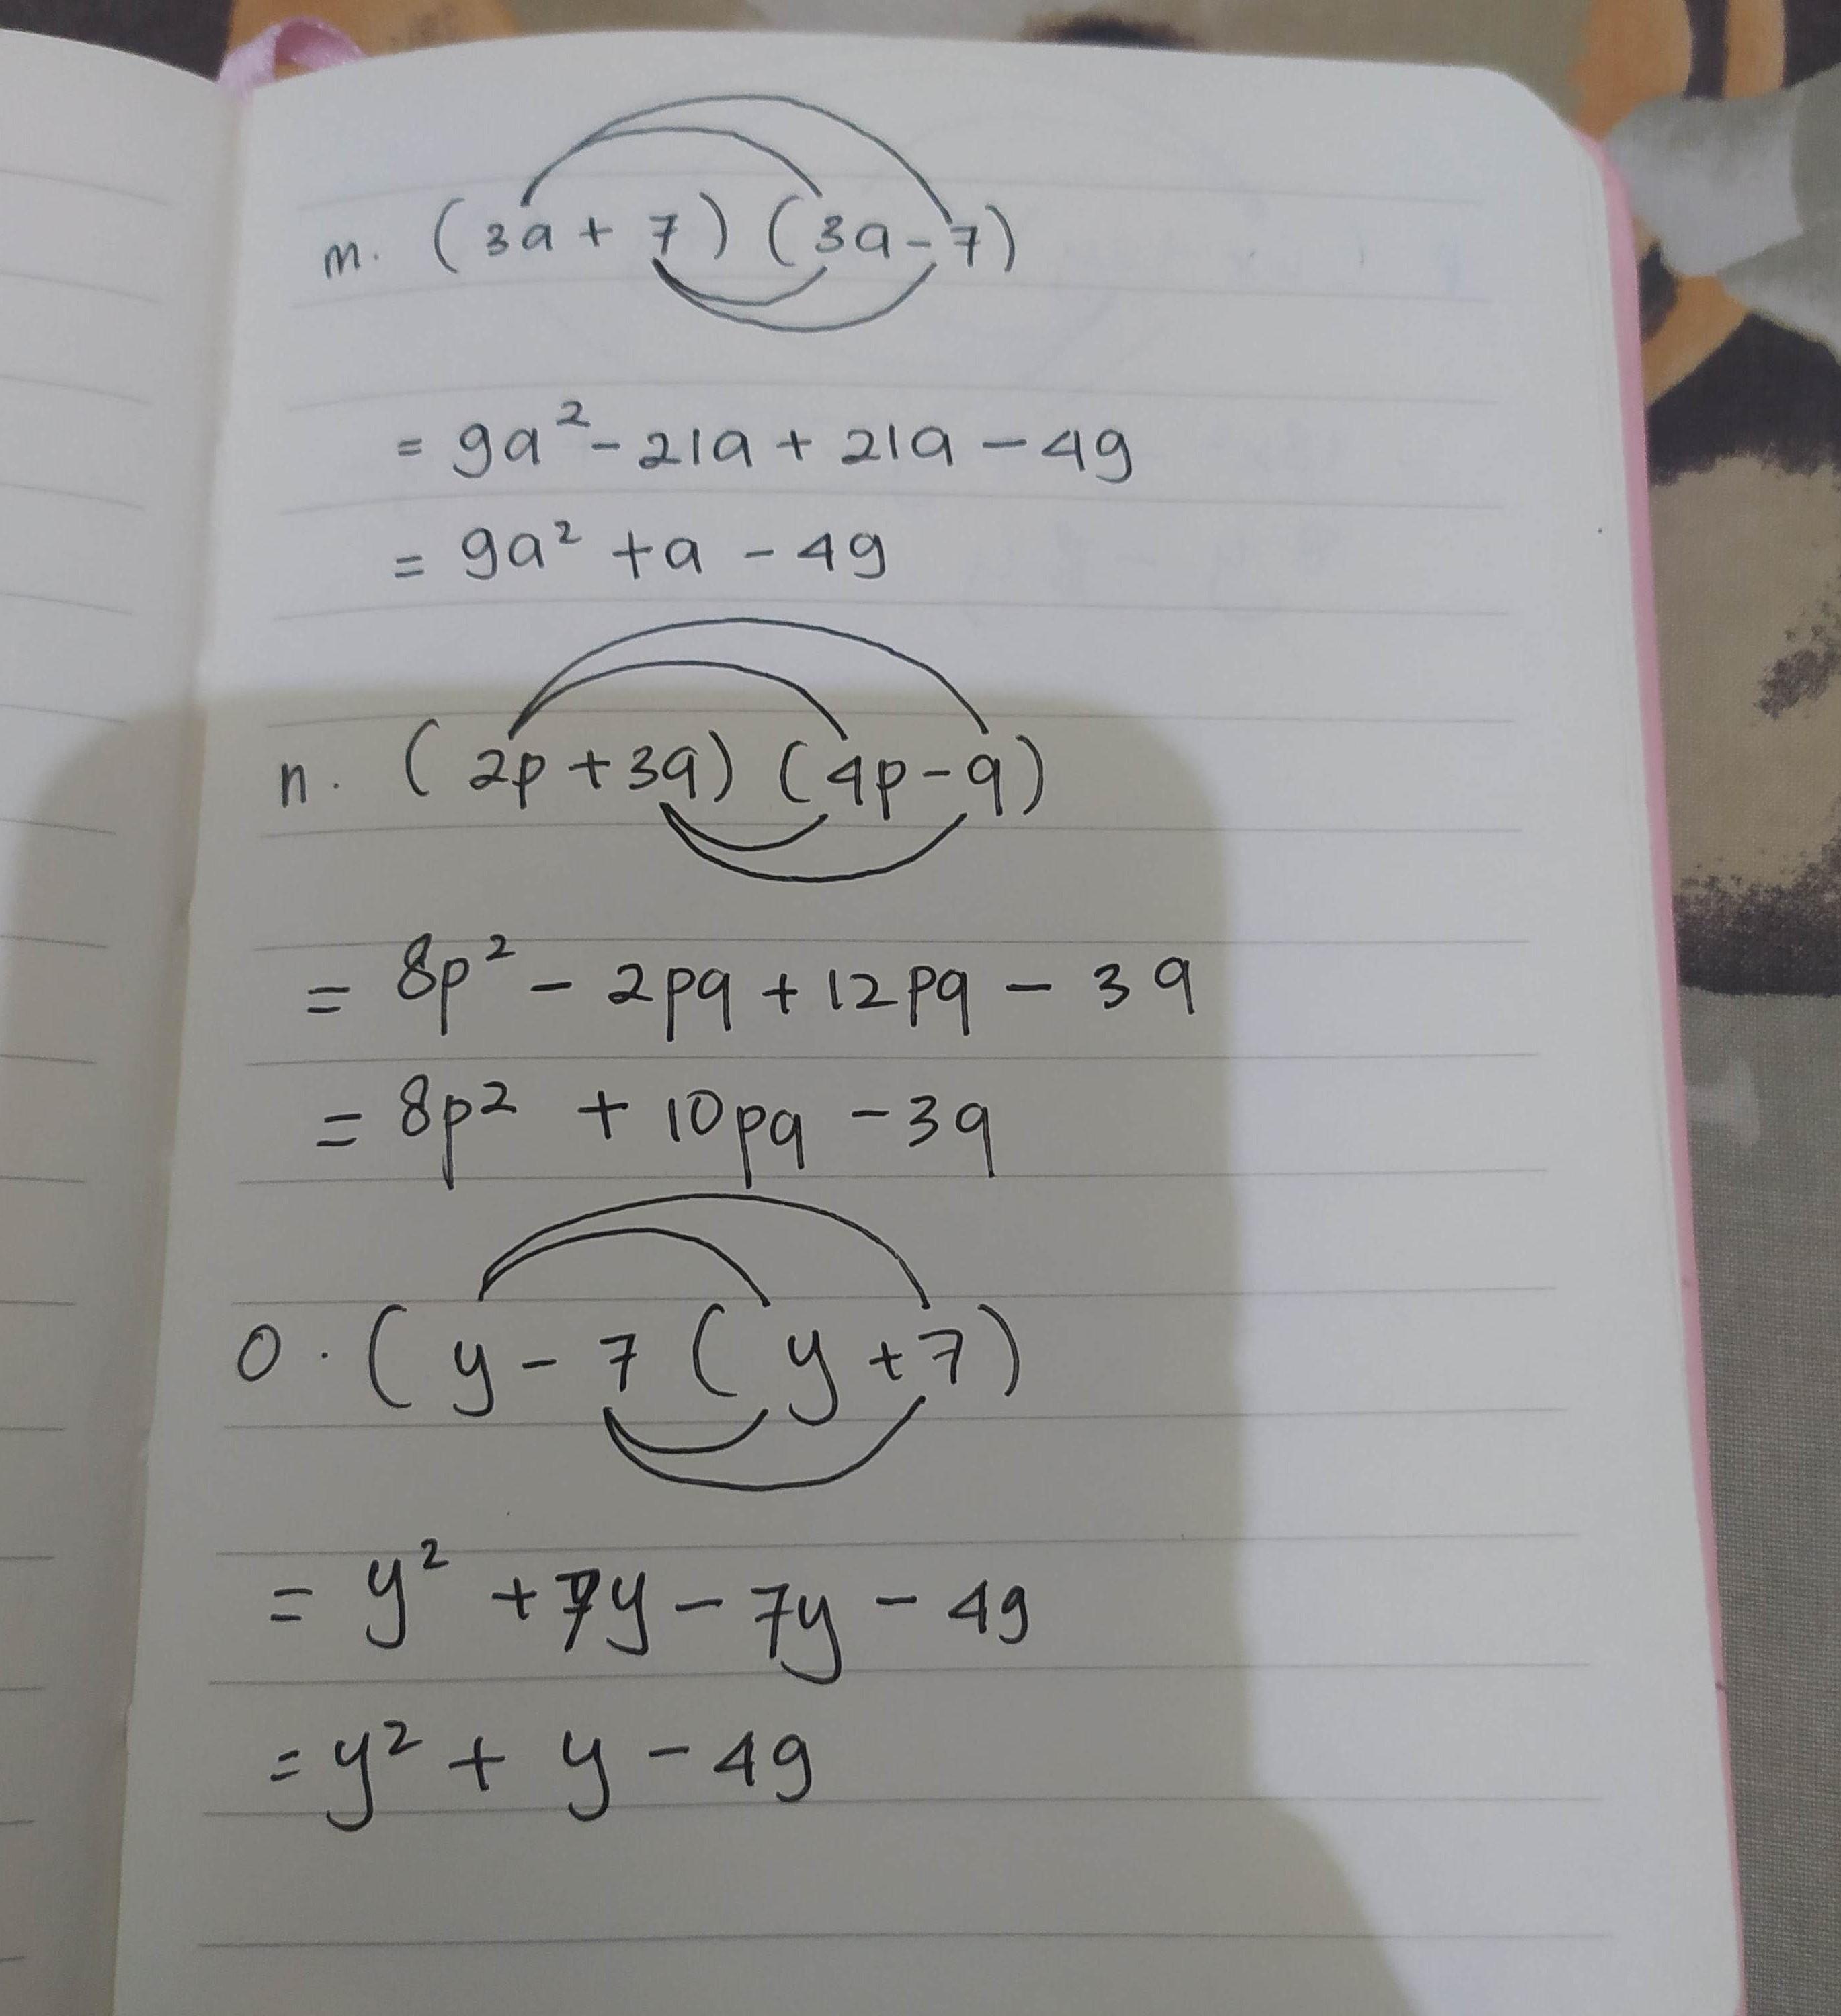 m. (3a + 7) (3a - 7)
= 9a² - 21a + 21a - 49
= 9a² + a - 49
n. (2p + 3q) (4p - q)
= 8p² - 2pq + 12pq - 3q
= 8p² + 10pq - 3q
o. (y - 7 (y + 7)
= y² + 7y - 7y - 49
= y² + y - 49